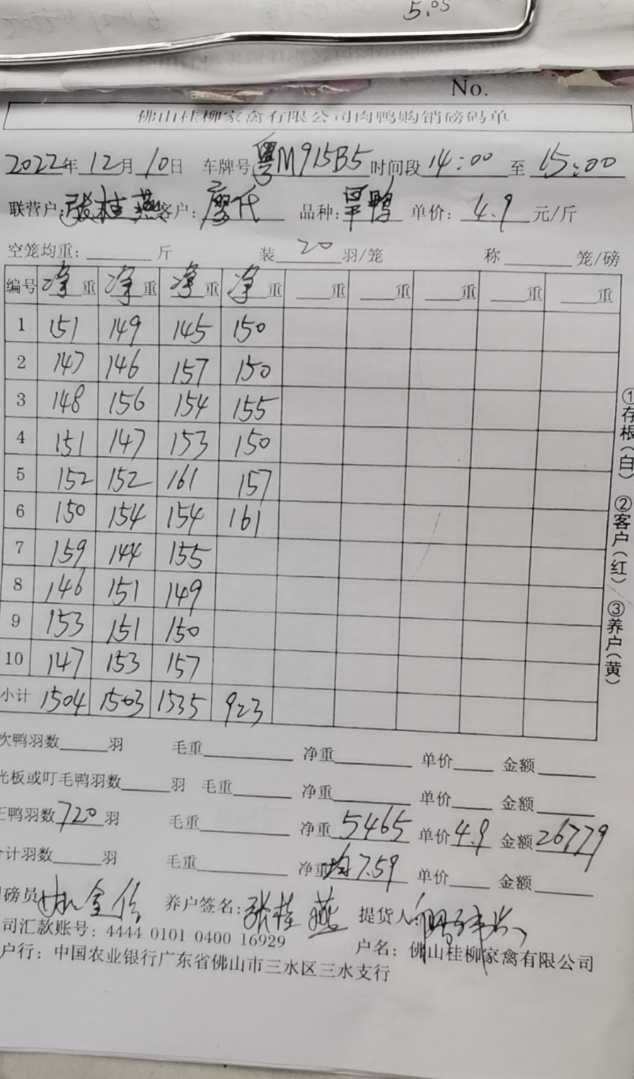 5.05
No.
佛山桂柳家禽有限公司肉鸭购销磅码单
2022年12月10日 车牌号粤M915B5时间段14:00至15:00
联营户:张桂燕客户:廖氏 品种:旱鸭 单价:4.9元/斤
空笼均重:____斤 装20羽/笼 称____笼/磅
编号 净重 净重 净重 净重 __重 __重 __重 __重 __重
1 151 149 145 150
2 147 146 157 150
3 148 156 154 155
4 151 147 153 150
5 152 152 161 157
6 150 154 154 161
7 159 144 155
8 146 151 149
9 153 151 150
10 147 153 157
小计 1504 1503 1535 923
次鸭羽数____羽 毛重____ 净重____ 单价____ 金额____
光板或叮毛鸭羽数____羽 毛重____ 净重____ 单价____ 金额____
正鸭羽数720羽 毛重____ 净重5465 单价4.9 金额26779
合计羽数____羽 毛重____ 净重均7.59 单价____ 金额____
磅员 养户签名:张桂燕 提货人:
司汇款账号:4444 0101 0400 16929 户名:佛山桂柳家禽有限公司
户行:中国农业银行广东省佛山市三水区三水支行
①存根(白) ②客户(红) ③养户(黄)